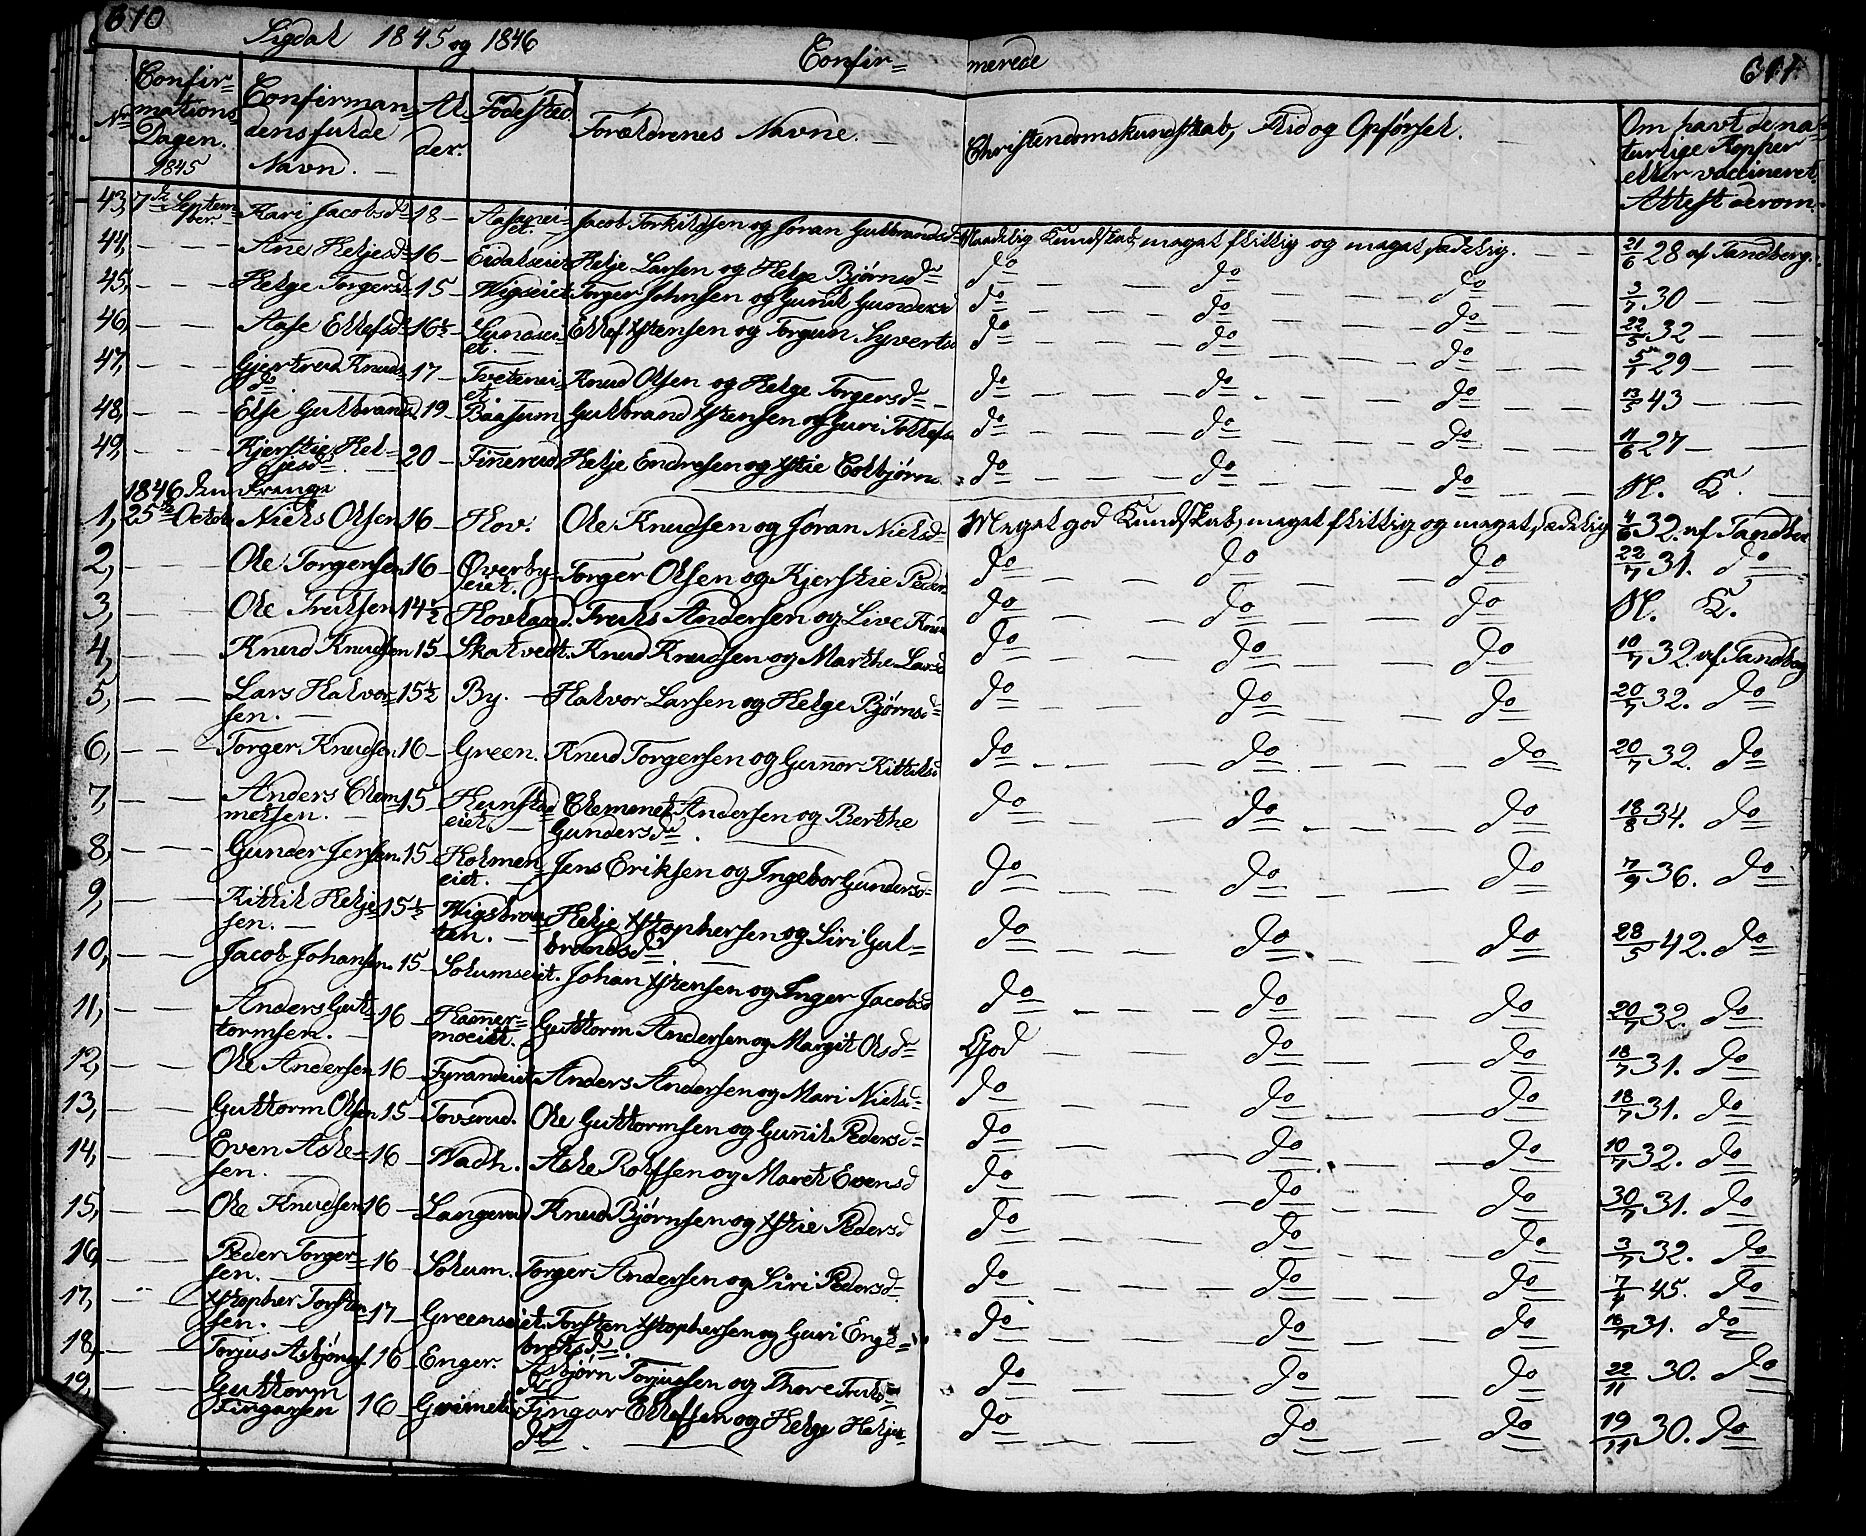 610 Sigdal 1845 og 1846 Confir= merede 611
No Confir=mations Dagen. 1845 Confirmandens fulde Navn. Alder. Fødested Forældrenes Navne. Christendomskundskab, Flid og Opførsel. Om havt de naturlige Kopper eller vaccineret. Attest derom.
43, 7de September Kari Jacobsd 18 - Aasaneiet. Jacob Torkildsen og Jøran Gulbrandsd Maadelig Kundskab, meget flittig og meget sædelig. 21/6 28 af Tandberg.
44, - - - Ane Heljesd 16 - Eidalseiet Helje Larsen og Helge Bjørnsd do do do 3/7 30
45, - - - Helge Torgersd 15 - Wigseiet Torger Johnsen og Gunil Gundersd do do do 22/5 32
46, - - - Aase Ellefsd 16½ - Ellef Xstensen og Torgun Syverts do do do 29
47, - - - Gjertrud Knudsd 17 - Tveteneiet Knud Olsen og Helge Torgersd do do do 13/5 43
48, - - - Else Gulbrands 19 - Baasum Gulbrand Xstensen og Guri Tollefs do do do 11/6 27
49, - - - Kjerstie Heljesd 20 - Finnerud Helje Endresen og Xstie Colbjørns do do do N. K.
1846 den Drenge
1, 25de Octob. Niels Olsen 16 - Hov. Ole Knudsen og Jøran Nielsd Meget god Kundskab, meget flittig og meget sædelig 4/6 32. af Tandber
2, - - Ole Torgersen 16 - Øverbyeiet. Torger Olsen og Kjerstie Peders do do do 22/7 31. do
3, - - Ole Trulsen 14½ Hovland. Truls Andersen og Live Knud do do do N. K.
4, - - Knud Knudsen 15 - Skalvedt. Knud Knudsen og Marthe Larsd do do do 10/7 32. af Tandberg
5, - - Lars Halvorsen. 15½ By. - Halvor Larsen og Helge Bjørnsd do do do 20/7 32. do
6, - - Torger Knudsen 16 - Green. Knud Torgersen og Gunnor Kittilsd do do do 20/7 32. do
7, - - Anders Clemmetsen. 15 - Hunstadeiet. Clemmet Andersen og Berthe Gundersd. do do do 18/8 34. do
8, - - Gunder Jensen. 15 - Holmeneiet. Jens Eriksen og Ingebor Gundersd do do do 7/9 36. do
9, - - Kittil Heljesen. 15½ Wigsbraaten. Helje Xstophersen og Siri Gulbrandsd do do do 28/5 42. do
10, - - Jacob Johansen. 15 - Solumseiet. Johan Xstensen og Inger Jacobsd do do do 20/7 32. do
11, - - Anders Guttormsen. 16 - Hammermoeiet. Guttorm Andersen og Margit Olsd God do do 18/7 31. do
12, - - Ole Andersen 16 - Fyrandeiet Anders Andersen og Mari Nielsd do do do 18/7 31. do
13, - - Guttorm Olsen 15 - Toverud. Ole Guttormsen og Gunnil Pedersd do do do 10/7 32. do
14, - - Even Aslesen. 16 - Wadh. Asle Rolfsen og Maret Evensd do do do 30/7 31. do
15, - - Ole Knudsen 16 - Langerud Knud Bjørnsen og Xstie Pedersd do do do 3/7 32. do
16, - - Peder Torgersen. 16 - Solum. Torger Andersen og Siri Pedersd do do do 7/7 45. do
17, - - Xstopher Torstensen. 17 - Greenseiet. Torsten Xstophersen og Guri Engebretsd. do do do 18/7 31. do
18, - - Torjus Asbjørns. 16 - Enger. Asbjørn Torjussen og Thore Trulsd do do do 22/11 30. do
19, - - Guttorm Fingarsen 16 - Fingar Ellefsen og Helge Heljesd do do do 19/11 30. do